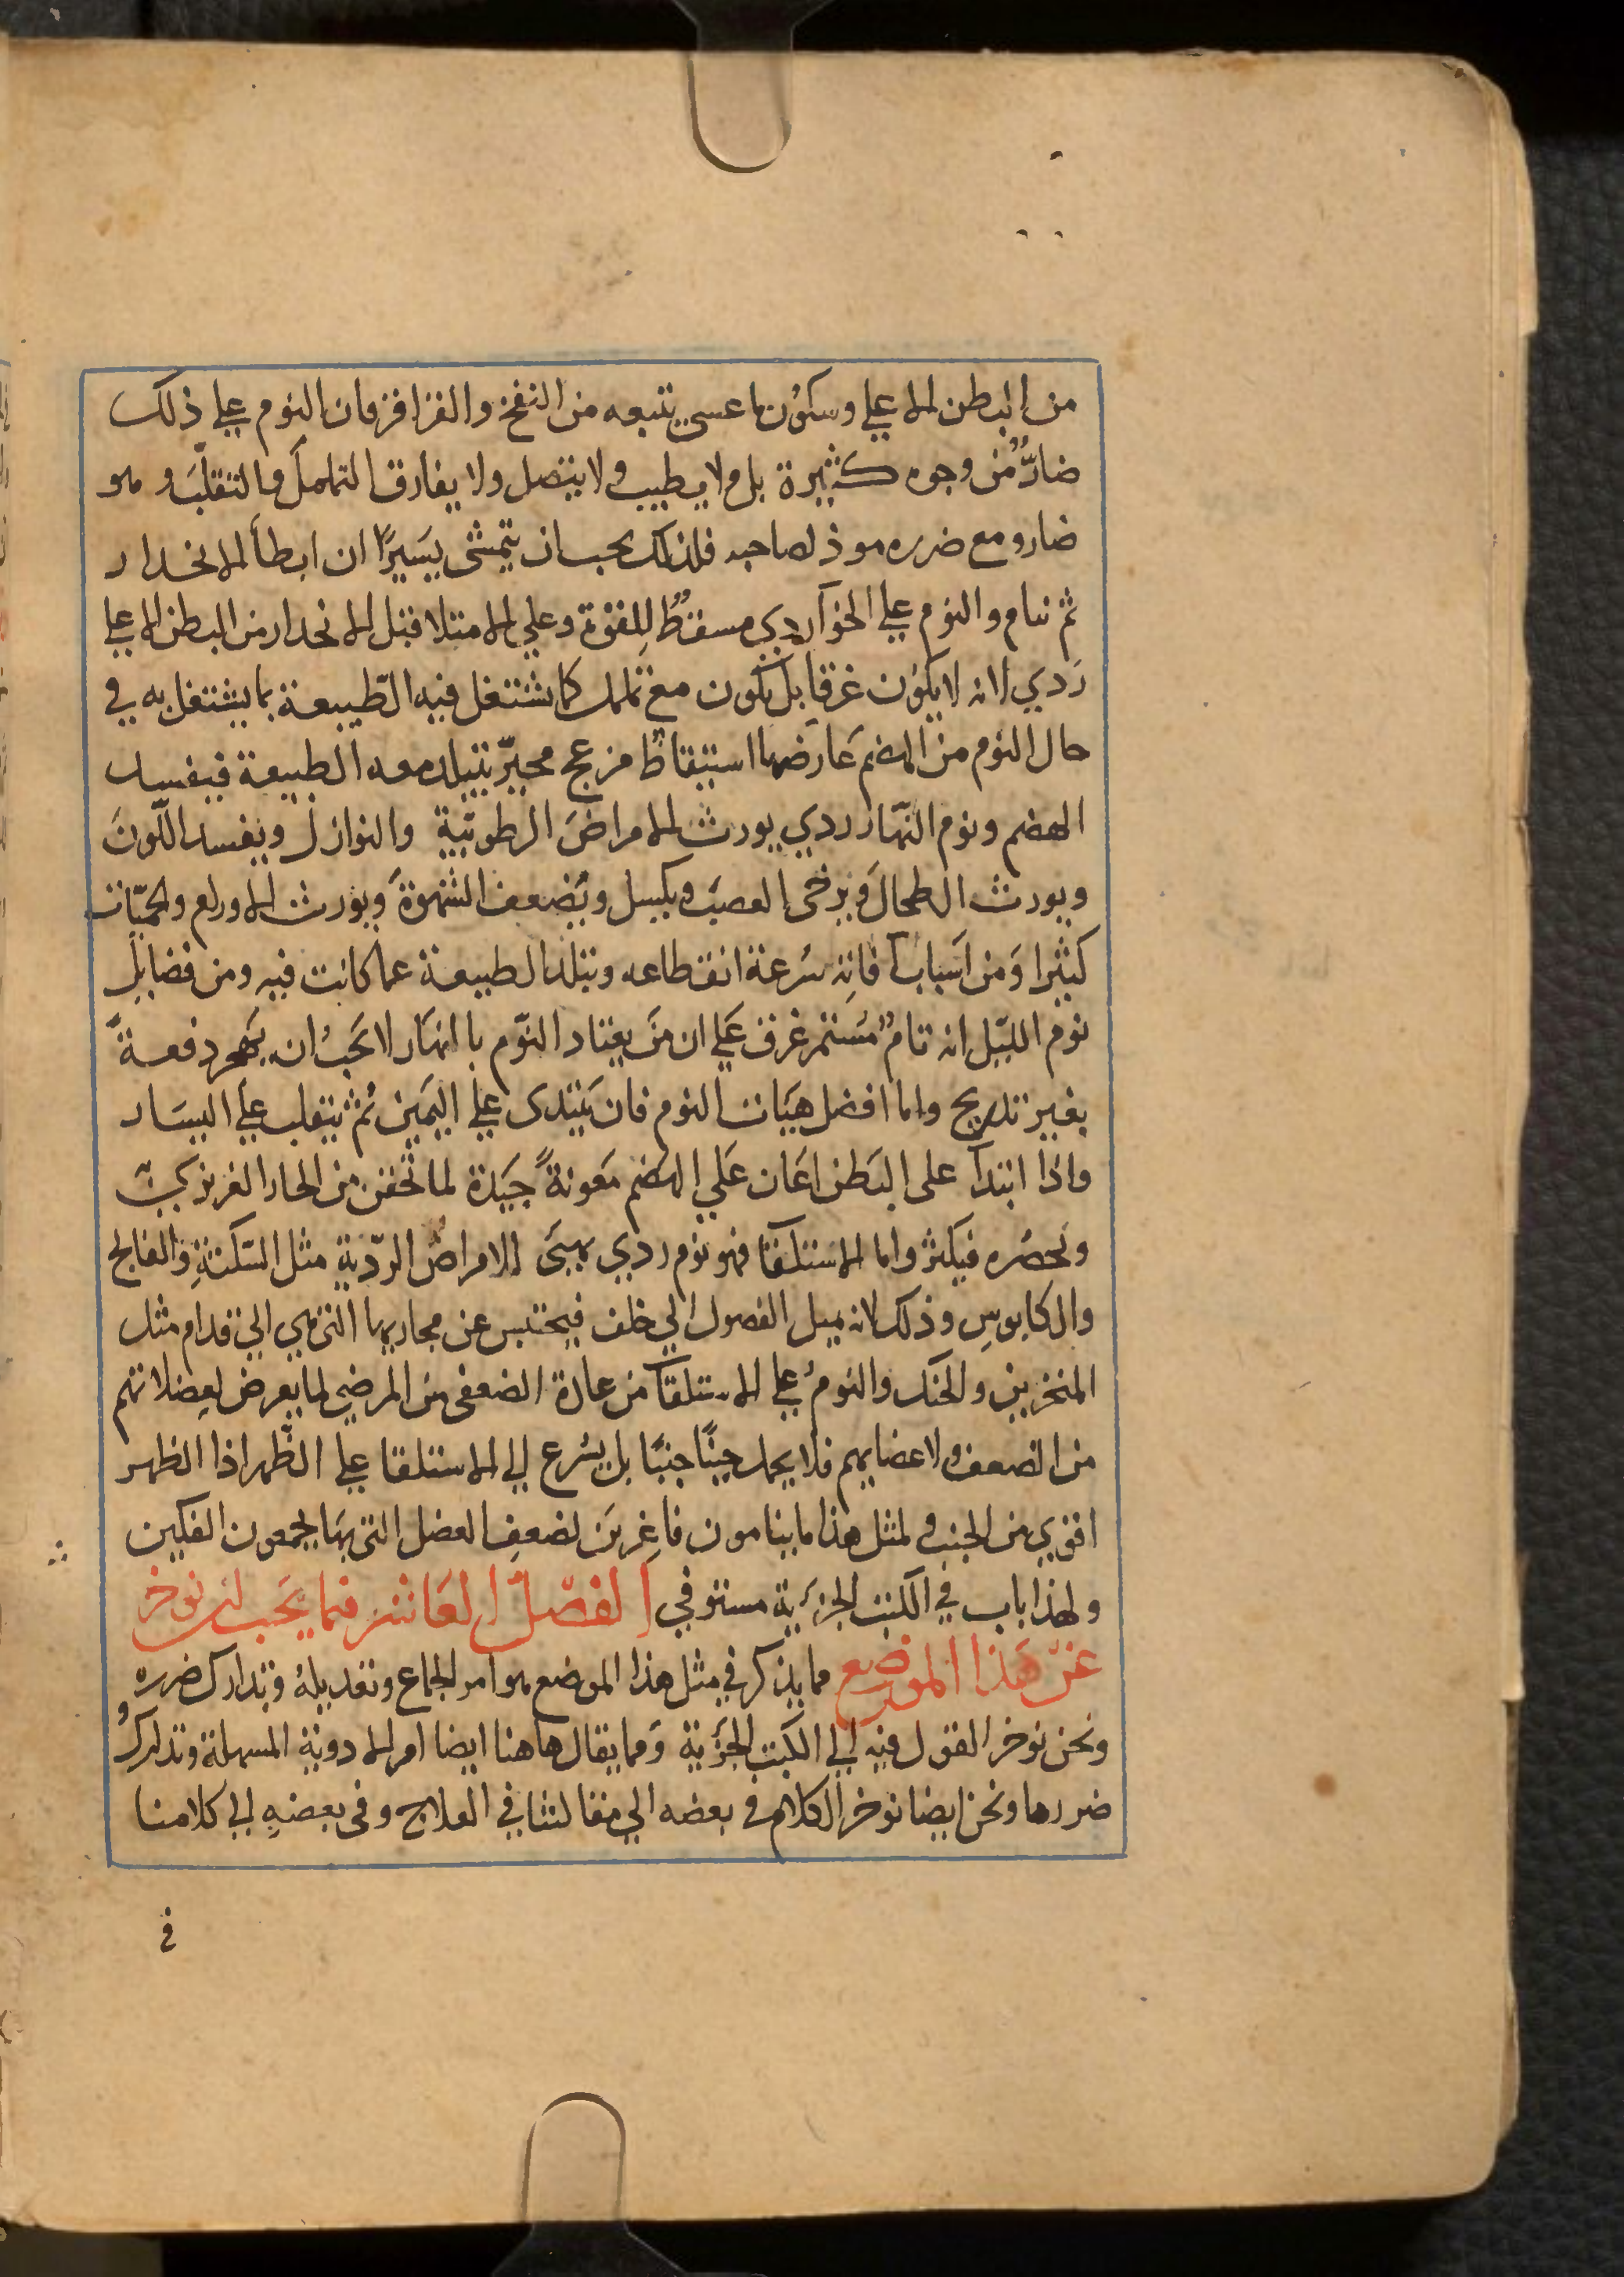 من البطن الاعلي وسكون ما عسي يتبعه من النفخ والقراقر فان النوم علي ذلك
ضارٌّ من وجوه كثيرة بل ولا يطيب ولا يتصل ولا يفارق التململ والتقلّب وهو
ضار ومع ضرره موذ لصاحبه فلذلك يجب ان يتمشى يسيرًا ان ابطأ الانحدار
ثم ينام والنوم علي الخوآ ردي مسقطٌ للقوة وعلي الامتلا قبل الانحدار من البطن الاعلي
ردي لانه لا يكون غرقا بل يكون مع تململ كما تشتغل فيه الطّبيعة بما يشتغل به في
حال النوم من الهضم عارضها استيقاظٌ مزعج محيّر يتبلد معه الطبيعة فيفسد
الهضم ونوم النّهار ردي يورث الامراض الرطوبيّة والنوازل ويفسد اللّون
ويورث الطحال ويرخى العصب ويكسل ويضعف الشهوة ويورث الاورام والحمّيات
كثيرا ومن اسباب آفاته سرعة انقطاعه وتبلد الطبيعة عما كانت فيه ومن فضايل
نوم اللّيل انه تامٌ مستمر غرق علي ان من يعتاد النوم بالنهار لا يجب ان يهجره دفعةً
بغير تدريج واما افضل هيات النوم فان يبتدى علي اليمين ثم ينقلب علي اليسار
واذا ابتدآ على البطن اعان علي الهضم معونةً جيدة لما تحقن من الحار الغريزي
وتحصره فيكثر واما الاستلقا فهو نوم ردي يهيى للامراض الرّدية مثل السّكتة والفالج
والكابوس وذلك لانه يميل الفصول الي خلف فيحتبس عن مجاريها التي هي الي قدام مثل
المنخرين والحنك والنوم علي الاستلقا من عادة الضعفى من المرضي لما يعرض لعضلاتهم
من الضعف ولاعضايهم فلا يحمل جنبًا جنبًا بل يسرع الي الاستلقا علي الظهر اذا الظهر
اقوي من الجنب ولمثل هذا ما ينامون فاغرين لضعف العضل التي بها يجمعون الفكين
ولهذا باب في الكتب الجزئية مستوفي الفصل العاشر فيما يجب ان نوخر
عن هذا الموضع مما يذكر في مثل هذا الموضع هو امر الجماع وتعديله وتدارك ضرره
ونحن نوخر القول فيه الي الكتب الجزئية ومما يقال هاهنا ايضا امر الادوية المسهلة وتداركُ
ضررها ونحن ايضا نوخر الكلام في بعضه الي مقالتنا في العلاج وفى بعضه الي كلامنا
في